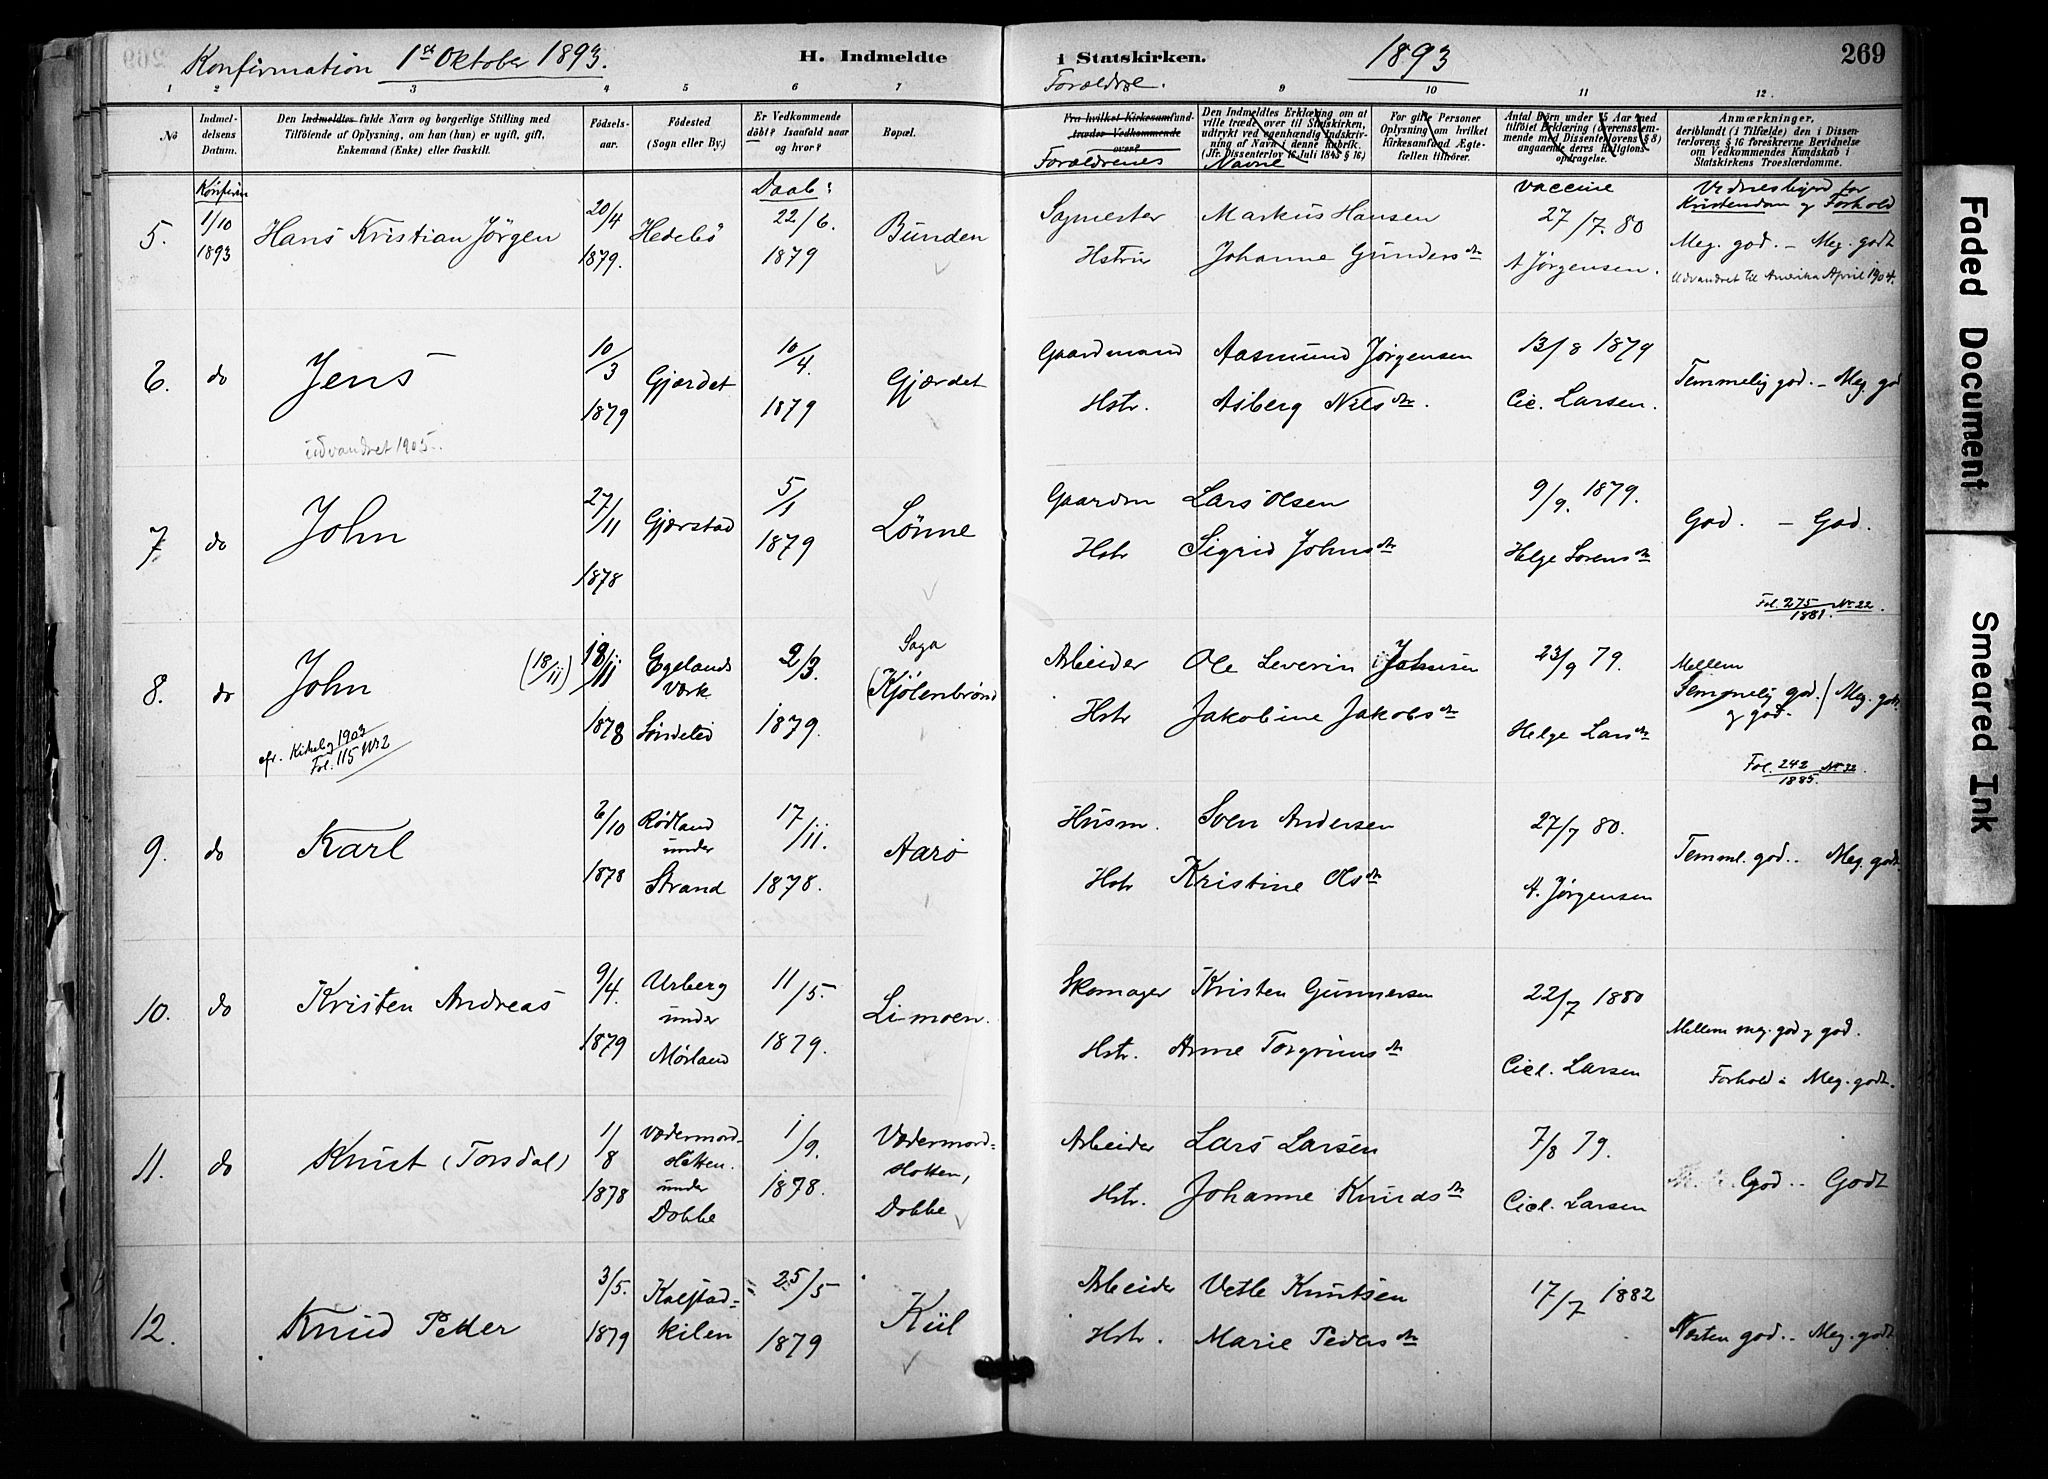 269
Konfirmation 1st Oktober 1893.
H. Indmeldte
i Statskirken.
1893
Forældre.
1 2 3 4 5 6 7 9 10 11 12.
No
Indmeldelsens Datum.
Den Indmeldtes fulde Navn og borgerlige Stilling med
Tilföiende af Oplysning, om han (hun) er ugift, gift,
Enkemand (Enke) eller fraskilt.
Födselsaar.
Födested
(Sogn eller By.)
Er Vedkommende
döbt? Isaafald naar
og hvor?
Bopæl.
Fra hvilket Kirkesamfund
træder Vedkommende
over?
Forældrenes
Den Indmeldtes Erklæring om at
ville træde over til Statskirken,
udtrykt ved egenhændig Indskrivning
af Navn i denne Rubrik.
(Jfr. Dissenterlov 16 Juli 1845 § 16)
Navne
For gifte Personer
Oplysning om hvilket
Kirkesamfund Ægtefællen
tilhörer.
Antal Börn under 15 Aar med
tilföiet Erklæring (overensstemmende
med Dissenterlovens § 8)
angaaende deres Religionsopdragelse.
Anmærkninger,
deriblandt (i Tilfælde) den i Dissenterlovens
§ 16 foreskrevne Bevidnelse
om Vedkommendes Kundskab i
Statskirkens Troeslærdomme.
Daab:
vaccine
Vidnesbyrd for
Kristendom og Forhold
5. 1/10 1893 Hans Kristian Jörgen 20/4 1879. Hedebö 22/6. 1879 Bunden
Sagmester Markus Hansen 27/7. 80 Meg. god. – Meg. godt
Hstru Johanne Gundersdr A Jørgensen.
Udvandret til Amerika April 1904.
6. do Jens 10/3 1879 Gjærdet 10/4. 1879 Gjærdet
Gaardmand Aasmund Jörgensen 13/8 1879 Temmelig god. – Meg. god
Hstr. Asberg Nilsdr. Cic. Larsen.
udvandret 1905.
7 do John 27/11 1878 Gjerstad 5/1 1879 Lönne
Gaardm Lars Olsen 9/9. 1879. God. – God.
Hstr Sigrid Johnsdr
Fol. 275 Nr 22.
1881.
8. do John (18/11) 18/11 1878 Egelands Værk Söndeled 2/3. 1879. Saga (Kjölenbrönd
Arbeider Ole Severin Johnsen 23/9 79. Mellem
Temmelig god. / Meg. godt.
og god.
Hstr Jakobine Jakobsdr Helge Larsdr
cfr. Kirkebog 1903
Fol. 115 Nr 2
Fol. 242 Nr 32
1885.
9. do Karl 6/10 1878 Rödland under Strand 17/11. 1878. Aarö
Husm. Sven Andersen 27/7 80. Temml. god. – Meg. godt.
Hstr Kristine Olsdr A. Jørgensen
10. do Kristen Andreas 9/4. 1879 Urberg under Mörland 11/5. 1879. Limoen.
Skomager Kristen Gunnersen 22/7 1880 Mellem meg. god og god.
Hstr. Anne Torgrimsdr Cicl. Larsen Forhold: Meg. godt.
11. do Knut (Torsdal) 1/8 1878 Vædermord-Hotten. under Dobbe 1/9. 1878. Vædermord-Hotten, Dobbe
Arbeider Lars Larsen 7/8 79. God – Godt
Hstr. Johanne Knudsdr Cicl. Larsen
12. Knud Peder 3/5. 1879 Kalstad-kilen 25/5 1879 Kiil
Arbeider Vetle Knutsen 17/7 1882 Næsten god. – Meg. godt.
Hstr. Marie Pedersdr
Faded Document
Smeared Ink